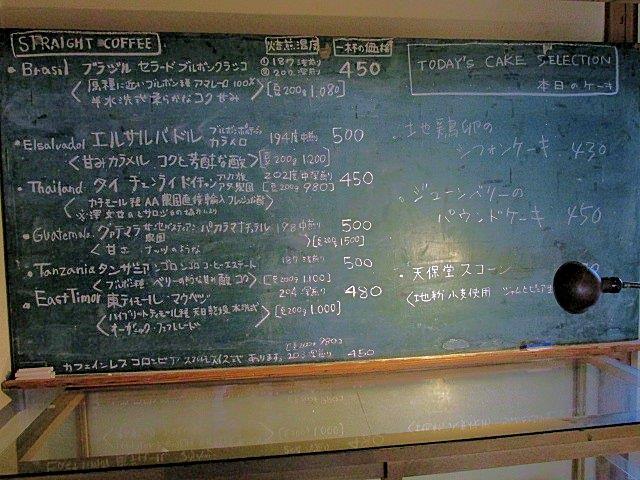 STRAIGHT COFFEE 焙煎温度 一杯の価格
Brasil ブラジル セラード ブルボンクラシコ ①187 浅煎り 450
〈原種に近いブルボン種 アマレーロ 100%
半水洗式 柔らかなコク 甘み〉 [豆200g 1,080]
Elsalvador エルサルバドル カラメロ 194度 中煎り 500
〈甘みカラメル コクと芳醇な酸〉 [豆200g 1200]
Thailand タイ チェンライ 農園 202度 中深煎り 450
〈カラモール種 AA 農園直接輸入 [豆200g 980]
Guatemala グァテマラ 農園 パカマラナチュラル 198 中煎り 500
〈甘さ ナッツのような〉 [豆200g 1500]
Tanzania タンザニア ンゴロンゴロ コーヒーエステート 187 浅煎り 500
〈ブルボン種 ベリーの様な甘酸 コク〉 [豆200g 1,100]
East Timor 東ティモール マウベシ 204 深煎り 480
〈ハイブリットティモール種 天日乾燥 水洗式
オーガニック・フェアトレード〉 [豆200g 1,000]
豆200g 980
カフェインレス コロンビア スイス式 あります。 203 深煎り 450
TODAY'S CAKE SELECTION
本日のケーキ
地鶏卵の
シフォンケーキ 430
ジューンベリーの
パウンドケーキ 450
天保堂 スコーン
〈地粉小麦使用